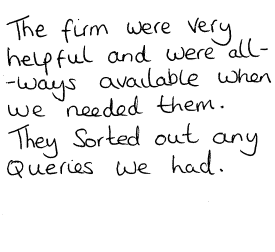 The firm were very
helpful and were all-
-ways available when
we needed them.
They Sorted out any
Queries we had.